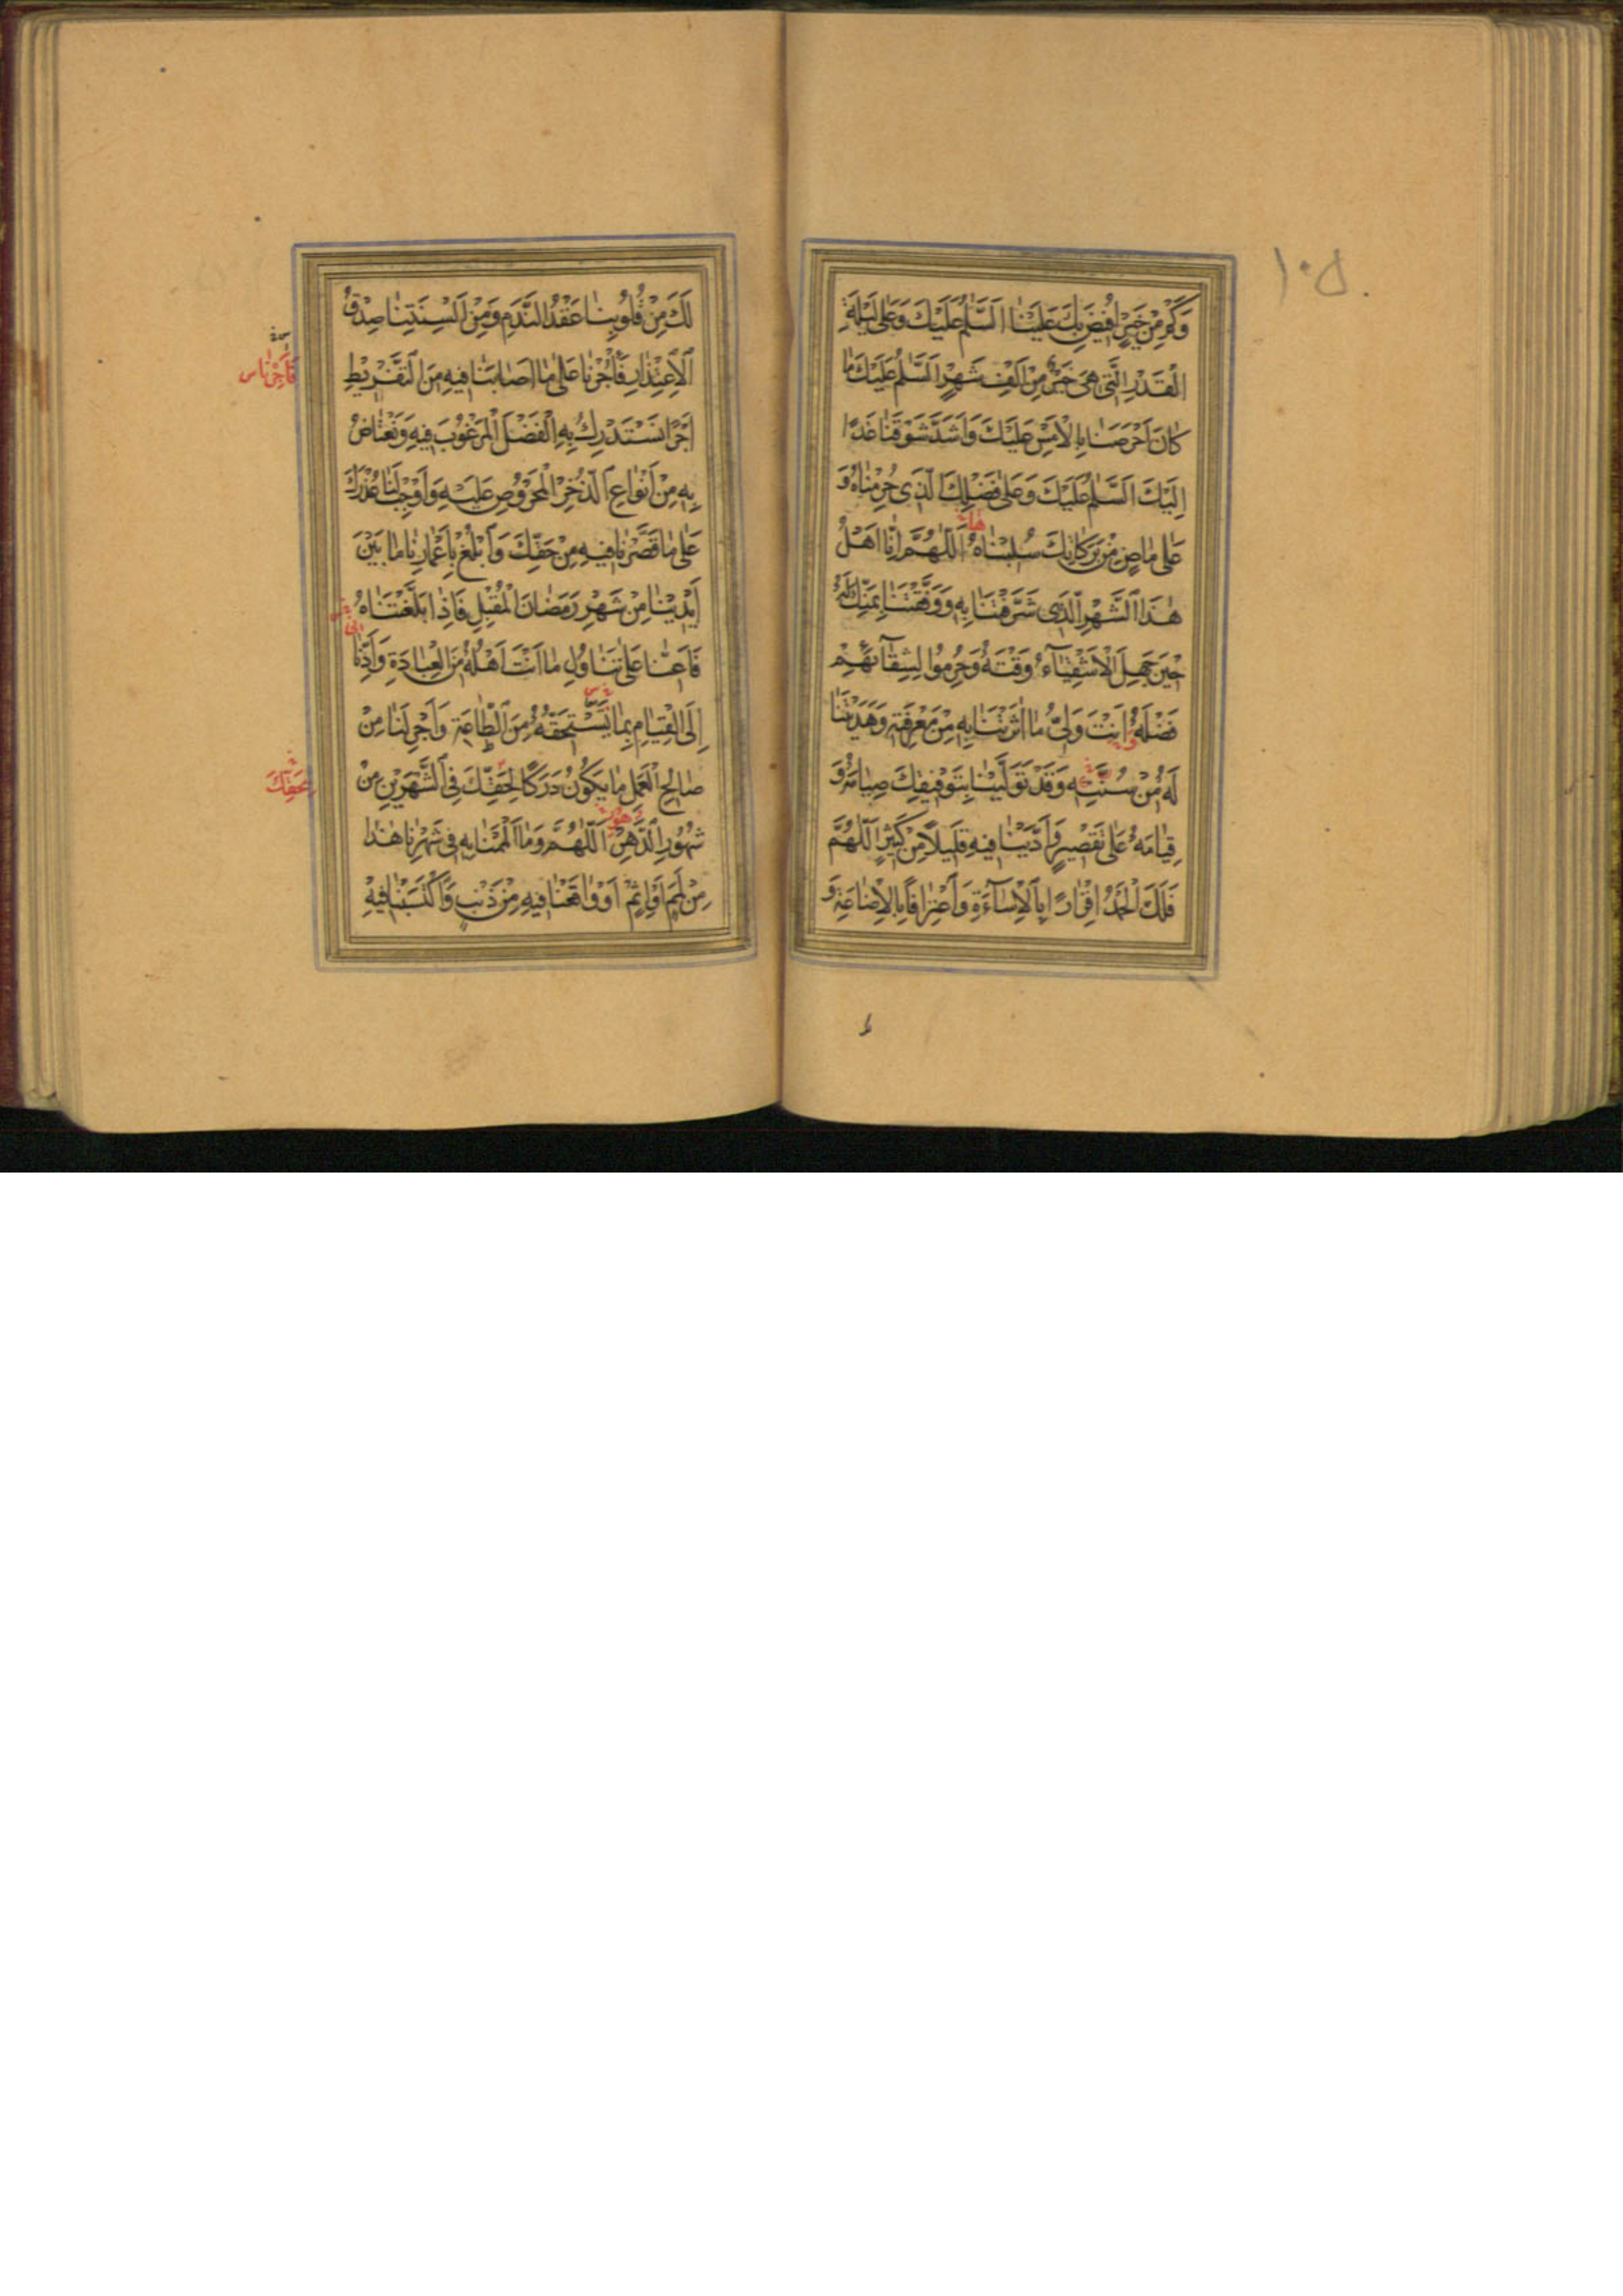 ١٠٥
وَكَمْ مِنْ خَيْرٍ اُفيضَ بِكَ عَلَيْنٰا اَلسَّلٰمُ عَلَيْكَ وَعَلىٰ لَيْلَةِ
الْقَدْرِ الَّتى هِىَ خَيْرٌ مِنْ اَلْفِ شَهْرٍ اَلسَّلٰمُ عَلَيْكَ مٰا
كٰانَ اَحْرَصَنٰا بِالْاَمْسِ عَلَيْكَ وَاَشَدَّ شَوْقَنٰا غَدًا
اِلَيْكَ اَلسَّلٰمُ عَلَيْكَ وَعَلىٰ فَضْلِكَ الَّذى حُرِمْنٰاهُ وَ
عَلىٰ مٰاضٍ مِنْ بَرَكٰاتِكَ سُلِبْنٰاهُ اَللّٰهُمَّ اِنّٰا اَهْلُ
هٰذَا الشَّهْرِ الَّذى شَرَّفْتَنٰا بِهِ وَوَفَّقْتَنٰا بِمَنِّكَ لَهُ
حينَ جَهِلَ الْاَشْقِيٰآءُ وَقْتَهُ وَحُرِمُوا لِشَقٰآئِهِمْ
فَضْلَهُ اَنْتَ وَلِىُّ مٰا اٰثَرْتَنٰا بِهِ مِنْ مَعْرِفَتِهِ وَهَدَيْتَنٰا
لَهُ مِنْ سُنَّتِهِ وَقَدْ تَوَلَّيْنٰا بِتَوْفيقِكَ صِيٰامَهُ وَ
قِيٰامَهُ عَلىٰ تَقْصيرٍ وَاَدَّيْنٰا فيهِ قَليلًا مِنْ كَثيرٍ اَللّٰهُمَّ
فَلَكَ الْحَمْدُ اِقْرٰارًا بِالْاِسٰآءَةِ وَاعْتِرٰافًا بِالْاِضٰاعَةِ وَ
لَكَ مِنْ قُلُوبِنٰا عَقْدُ النَّدَمِ وَمِنْ اَلْسِنَتِنٰا صِدْقُ
الْاِعْتِذٰارِ فَأْجُرْنٰا عَلىٰ مٰا اَصٰابَنٰا فيهِ مِنَ التَّفْريطِ
فَاَجِرْنٰا س
اَجْرًا نَسْتَدْرِكُ بِهِ الْفَضْلَ الْمَرْغُوبَ فيهِ وَنَعْتٰاضُ
بِهِ مِنْ اَنْوٰاعِ الذُّخْرِ الْمَحْرُوصِ عَلَيْهِ وَاَوْجِبْ لَنٰا عُذْرَكَ
عَلىٰ مٰا قَصَّرْنٰا فيهِ مِنْ حَقِّكَ وَابْلُغْ بِاَعْمٰارِنٰا مٰا بَيْنَ
اَيْدينٰا مِنْ شَهْرِ رَمَضٰانَ الْمُقْبِلِ فَاِذٰا بَلَّغْتَنٰاهُ
فَاَعِنّٰا عَلىٰ تَنٰاوُلِ مٰا اَنْتَ اَهْلُهُ مِنَ الْعِبٰادَةِ وَاَدِّنٰا
اِلَى الْقِيٰامِ بِمٰا يَسْتَحِقُّهُ مِنَ الطّٰاعَةِ وَاَجْرِ لَنٰا مِنْ
صٰالِحِ الْعَمَلِ مٰا يَكُونُ دَرَكًا لِحَقِّكَ فِى الشَّهْرَيْنِ مِنْ
بِحَقِّكَ
شُهُورِ الدَّهْرِ اَللّٰهُمَّ وَمٰا اَلْمَمْنٰا بِهِ فى شَهْرِنٰا هٰذٰا
مِنْ لَمَمٍ اَوْ اِثْمٍ اَوْ وٰاقَعْنٰا فيهِ مِنْ ذَنْبٍ وَاكْتَسَبْنٰا فيهِ